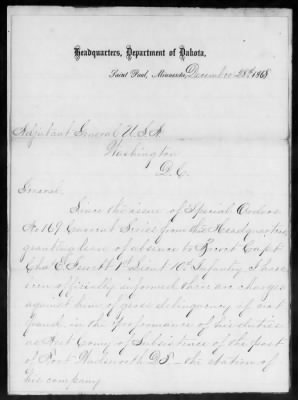 Headquarters, Department of Dakota,
Saint Paul, Minnesota, December 28th 1868
Adjutant General U.S.A.
Washington
D.C.
General:
Since the issue of Special Orders
No 169 Current Series from this Headquarters,
granting leave of absence to Brevet Capt
Chas E. Jewett 1st Lieut 10th Infantry I have
been officially informed there are charges
against him of gross delinquency at
in the performance of his duties
as Act Comy of Subsistence of the post
of Fort Wadsworth D.T. – the station of
his company